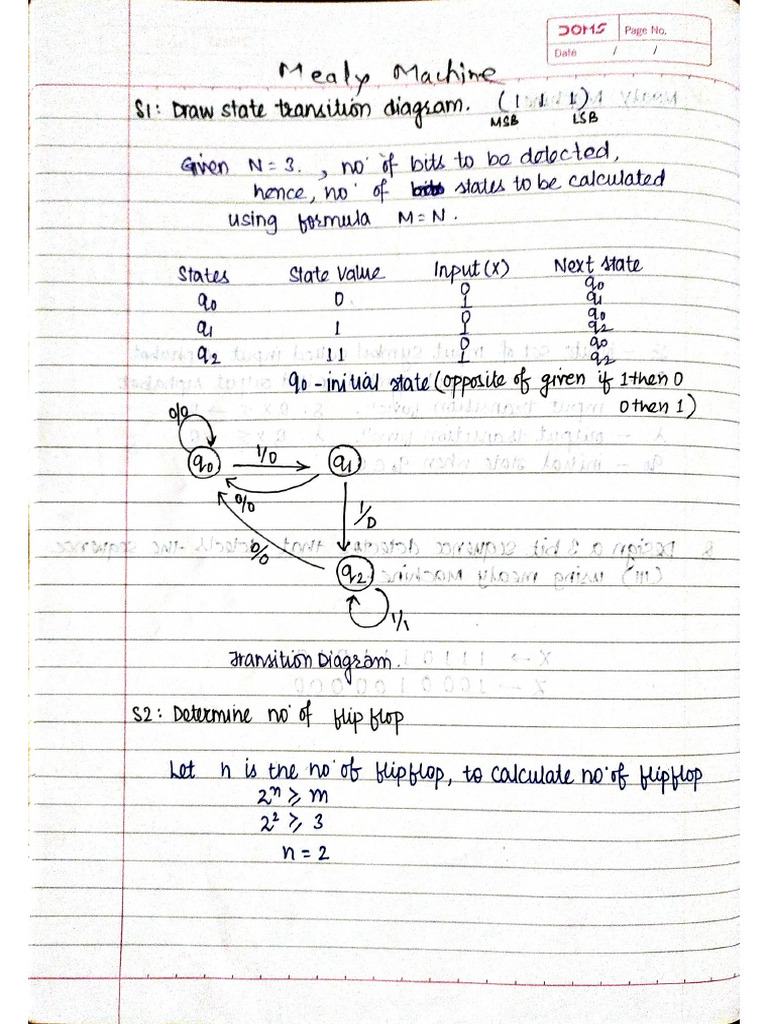 DOMS
Page No.
Date / /
Mealy Machine
S1: Draw state transition diagram. (1 1 1)
MSB LSB
Given N=3. , no. of bits to be detected,
hence, no. of states to be calculated
using formula M=N.
States State Value Input(x) Next state
q0 0 0 q0
1 q1
q1 1 0 q0
1 q2
q2 11 0 q0
1 q2
q0 - initial state (opposite of given if 1 then 0
0 then 1)
0/0
q0 1/0 q1
0/0
1/0
0/0
q2
1/1
Transition Diagram.
S2: Determine no. of flip flop
Let n is the no. of flipflop, to calculate no. of flipflop
2ⁿ ⩾ m
2² ⩾ 3
n = 2